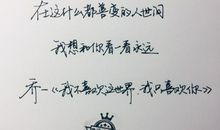 在这什么都善变的人世间
我想和你看一看永远
乔一《我不喜欢这世界 我只喜欢你》